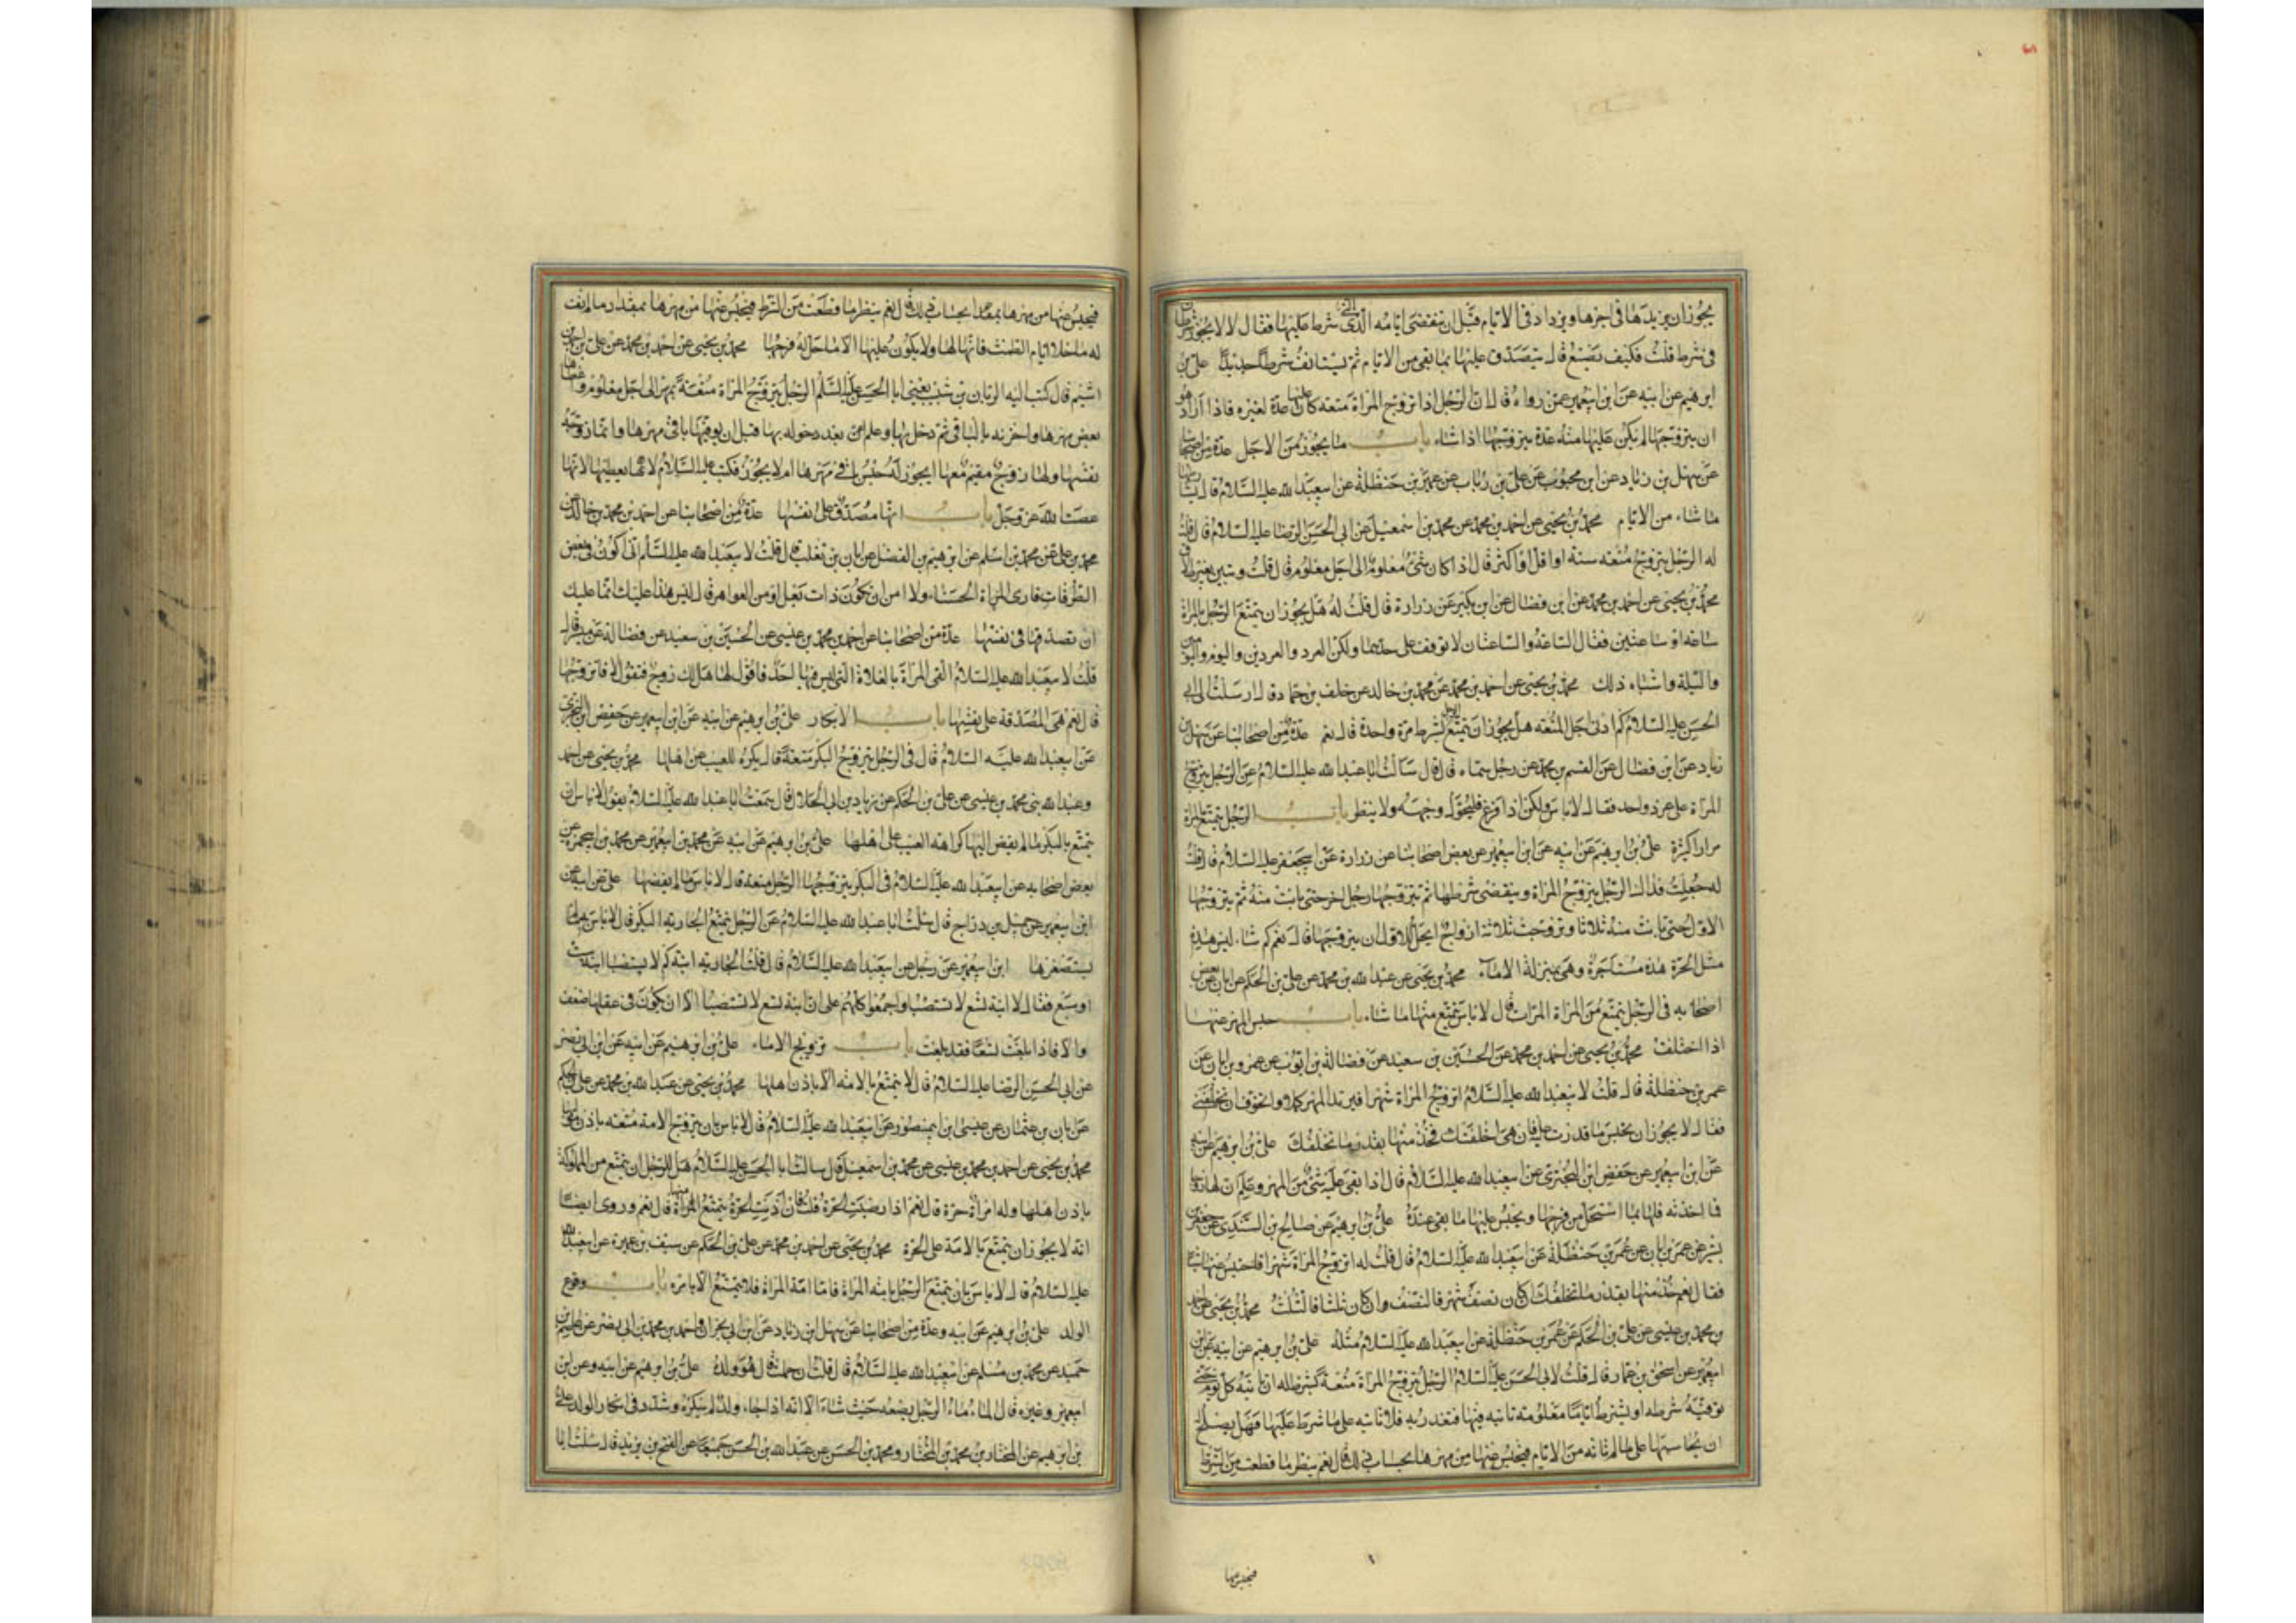 يجوز ان يزيدها فى اجرها ويزداد فى الايام قبل ان تنقضى ايامه الذى شرط عليها فقال لا لا يجوز شرطان
فى شرط قلت فكيف يصنع قال يتصدق عليها بما بقى من الايام ثم يستانف شرطا جديدا على بن
ابرهيم عن ابيه عن ابن ابيعمير عمن رواه قال ان الرجل اذا تزوج المراة متعه كان عليها عدة لغيره فاذا اراد هو
ان يتزوجها لم يكن عليها منه عدة يتزوجها اذا شاء باب ما يجوز من الاجل عدة من اصحابنا
عن سهل بن زياد عن ابن محبوب عن على بن رئاب عن عمر بن حنظلة عن ابيعبد الله عليه السلام قال يشارطها
ما شاء من الايام محمد بن يحيى عن احمد بن محمد عن محمد بن اسمعيل عن ابى الحسن الرضا عليه السلام قال قلت
له الرجل يتزوج متعه سنة او اقل او اكثر قال اذا كان شئ معلوم الى اجل معلوم قال قلت وتبين بغير طلاق
محمد بن يحيى عن احمد بن محمد عن ابن فضال عن ابن بكير عن زرارة قال قلت له هل يجوز ان يتمتع الرجل بالمراة
ساعه او ساعتين فقال الساعة والساعتان لا توقف على حدهما ولكن العرد والعردين واليوم واليومين
والليلة واشباه ذلك محمد بن يحيى عن احمد بن محمد عن محمد بن خالد عن خلف بن حماد قال ارسلت الى ابى
الحسن عليه السلام كم ادنى اجل المتعه هل يجوز ان يتمتع الرجل بشرط مرة واحدة قال نعم عدة من اصحابنا عن سهل بن
زياد عن ابن فضال عن القسم بن محمد عن رجل سماه قال قال سالت ابا عبد الله عليه السلام عن الرجل يتزوج
المراة على عرد واحد فقال لا باس ولكن اذا فرغ فليحول وجهه ولا ينظر باب الرجل يتمتع بالمراة
مرارا كثيرة على بن ابرهيم عن ابيه عن ابن ابيعمير عن بعض اصحابنا عن زرارة عن ابيجعفر عليه السلام قال قلت
له جعلت فداك الرجل يتزوج المراة وينقضى شرطها ثم يتزوجها رجل اخر حتى بانت منه ثم يتزوجها
الاول حتى بانت منه ثلاثا وتزوجت ثلاثة ازواج ايحل للاول ان يتزوجها قال نعم كم شاء ليس هذه
مثل الحرة هذه مستاجرة وهى بمنزلة الاماء محمد بن يحيى عن عبد الله بن محمد عن على بن الحكم عن ابان عن بعض
اصحابه فى الرجل يتمتع من المراة المرات قال لا باس يتمتع منها ما شاء باب حبس المهر عنها
اذا اخلفت محمد بن يحيى عن احمد بن محمد عن الحسين بن سعيد عن فضالة بن ايوب عن عمر وبن ابان عن
عمر بن حنظلة قال قلت لابيعبد الله عليه السلام اتزوج المراة شهرا فيريد المهر كملا واتخوف ان تخلفنى
فقال لا يجوز ان يحبس ما قدرت عليه فان هى اخلفتك فخذ منها بقدر ما تخلفك على بن ابرهيم عن ابيه
عن ابن ابيعمير عن حفص ابن البخترى عن ابيعبد الله عليه السلام قال اذا بقى عليه شئ من المهر وعلم ان لها زوجا
فما اخذته فلها بما استحل من فرجها ويحبس عليها ما بقى عنده على بن ابرهيم عن صالح بن السندى عن جعفر بن
بشير عن عمر بن ابان عن عمر بن حنظلة عن ابيعبد الله عليه السلام قال قلت له اتزوج المراة شهرا فاحبس عنها شيئا
فقال نعم خذ منها بقدر ما تخلفك ان كان نصف شهر فالنصف وان كان ثلثا فالثلث محمد بن يحيى عن احمد
بن محمد بن عيسى عن على بن الحكم عن عمر بن حنظلة عن ابيعبد الله عليه السلام مثله على بن ابرهيم عن ابيه عن ابن
ابيعمير عن اسحق بن عمار قال قلت لابى الحسن عليه السلام الرجل يتزوج المراة متعة تشترط له ان تاتيه كل يوم حتى
توفيه شرطه او يشترط اياما معلومه تاتيه فيها فتغدر به فلا تاتيه على ما شرط عليها فهل يصلح
ان يحاسبها على ما لم تاته من الايام فيحبس عنها من مهرها بحساب ذلك قال نعم ينظر ما قطعت من الشرط
فيحبس عنها
فيحبس عنها من مهرها بمقدار بحساب ذلك قال نعم ينظر ما قطعت من الشرط فيحبس عنها من مهرها بمقدار ما لم تف
له ما خلا ايام الطمث فانها لها ولا يكون عليها الا ما حل له فرجها محمد بن يحيى عن احمد بن محمد عن على بن احمد بن
اشيم قال كتب اليه الريان بن شبيب يعنى ابا الحسن عليه السلم الرجل يتزوج المراة متعة بمهر الى اجل معلوم واعطاها
بعض مهرها واخرته بالباقى ثم دخل بها وعلم من بعد دخوله بها قبل ان يوفيها باقى مهرها وانما زوجته
نفسها ولها زوج مقيم معها ايجوز له حبس باقى مهرها ام لا يجوز فكتب عليه السلام لا يعطيها لانها
عصت الله عز وجل باب انها مصدقة على نفسها عدة من اصحابنا عن احمد بن محمد بن خالد عن
محمد بن على عن محمد بن اسلم عن ابرهيم بن الفضل عن ابان بن تغلب قال قلت لابيعبد الله عليه السلم انى اكون فى بعض
الطرقات فارى المراة الحسناء ولا امن ان تكون ذات بعل او من العواهر قال ليس هذا عليك انما عليك
ان تصدقها فى نفسها عدة من اصحابنا عن احمد بن محمد بن عيسى عن الحسين بن سعيد عن فضالة عن ميسر قال
قلت لابيعبد الله عليه السلام القى المراة بالفلاة التى ليس فيها احد فاقول لها هل لك زوج فتقول لا فاتزوجها
قال نعم هى المصدقة على نفسها باب الابكار على بن ابرهيم عن ابيه عن ابن ابيعمير عن حفص ابن البخترى
عن ابيعبد الله عليه السلام قال فى الرجل يتزوج البكر متعة قال يكره للعيب عن اهلها محمد بن يحيى عن احمد
وعبد الله بنى محمد بن عيسى عن على بن الحكم عن زياد بن ابى الحلال قال سمعت ابا عبد الله عليه السلام يقول لا باس ان
يتمتع بالبكر ما لم يفض اليها كراهة العيب على اهلها على بن ابرهيم عن ابيه عن محمد بن ابيعمير عن محمد بن ابيحمزة عن
بعض اصحابه عن ابيعبد الله عليه السلام فى البكر يتزوجها الرجل متعة قال لا باس ما لم يفتضها على عن ابيه عن
ابن ابيعمير عن جميل بن دراج قال سئلت ابا عبد الله عليه السلام عن الرجل يتمتع الجارية البكر قال لا باس بذلك ما لم
يستصغرها ابن ابيعمير عن رجل عن ابيعبد الله عليه السلام قال قلت الجارية ابنة كم لا يستصبا ابنة ست
او سبع فقال لا ابنة تسع لا تستصبا واجمعوا كلهم على ان ابنة تسع لا تستصبا الا ان يكون فى عقلها ضعف
والا فاذا بلغت تسعا فقد بلغت باب تزويج الاماء على بن ابرهيم عن ابيه عن ابن ابى نصر
عن ابى الحسن الرضا عليه السلام قال لا يتمتع بالامة الا باذن اهلها محمد بن يحيى عن عبد الله بن محمد عن على بن الحكم
عن ابان بن عثمان عن عيسى ابن ابيمنصور عن ابيعبد الله عليه السلام قال لا باس بان يتزوج الامة متعه باذن مولاها
محمد بن يحيى عن احمد بن محمد بن عيسى عن محمد بن اسمعيل قال سالت ابا الحسن عليه السلام هل للرجل ان يتمتع من المملوكة
باذن اهلها وله امراة حرة قال نعم اذا رضيت الحرة قلت فان اذنت الحرة يتمتع منها قال نعم وروى ايضا
انه لا يجوز ان يتمتع بالامة على الحرة محمد بن يحيى عن احمد بن محمد عن على بن الحكم عن سيف بن عميرة عن ابيعبد الله
عليه السلام قال لا باس بان يتمتع الرجل بامة المراة فاما امة المراة فلا يتمتع الا بامره باب وقوع
الولد على بن ابرهيم عن ابيه وعدة من اصحابنا عن سهل ابن زياد عن ابن ابى نجران واحمد بن محمد بن ابى نصر عن عاصم بن
حميد عن محمد بن مسلم عن ابيعبد الله عليه السلام قال قلت ان حملت قال هو ولده على بن ابرهيم عن ابيه وعن ابن
ابيعمير وغيره قال الماء ماء الرجل يضعه حيث شاء الا انه اذا جاء ولد لم ينكره وشدد فى انكار الولد على
بن ابرهيم عن المختار بن محمد بن المختار ومحمد بن الحسن عن عبد الله بن الحسن جميعا عن الفتح بن يزيد قال سئلت ابا